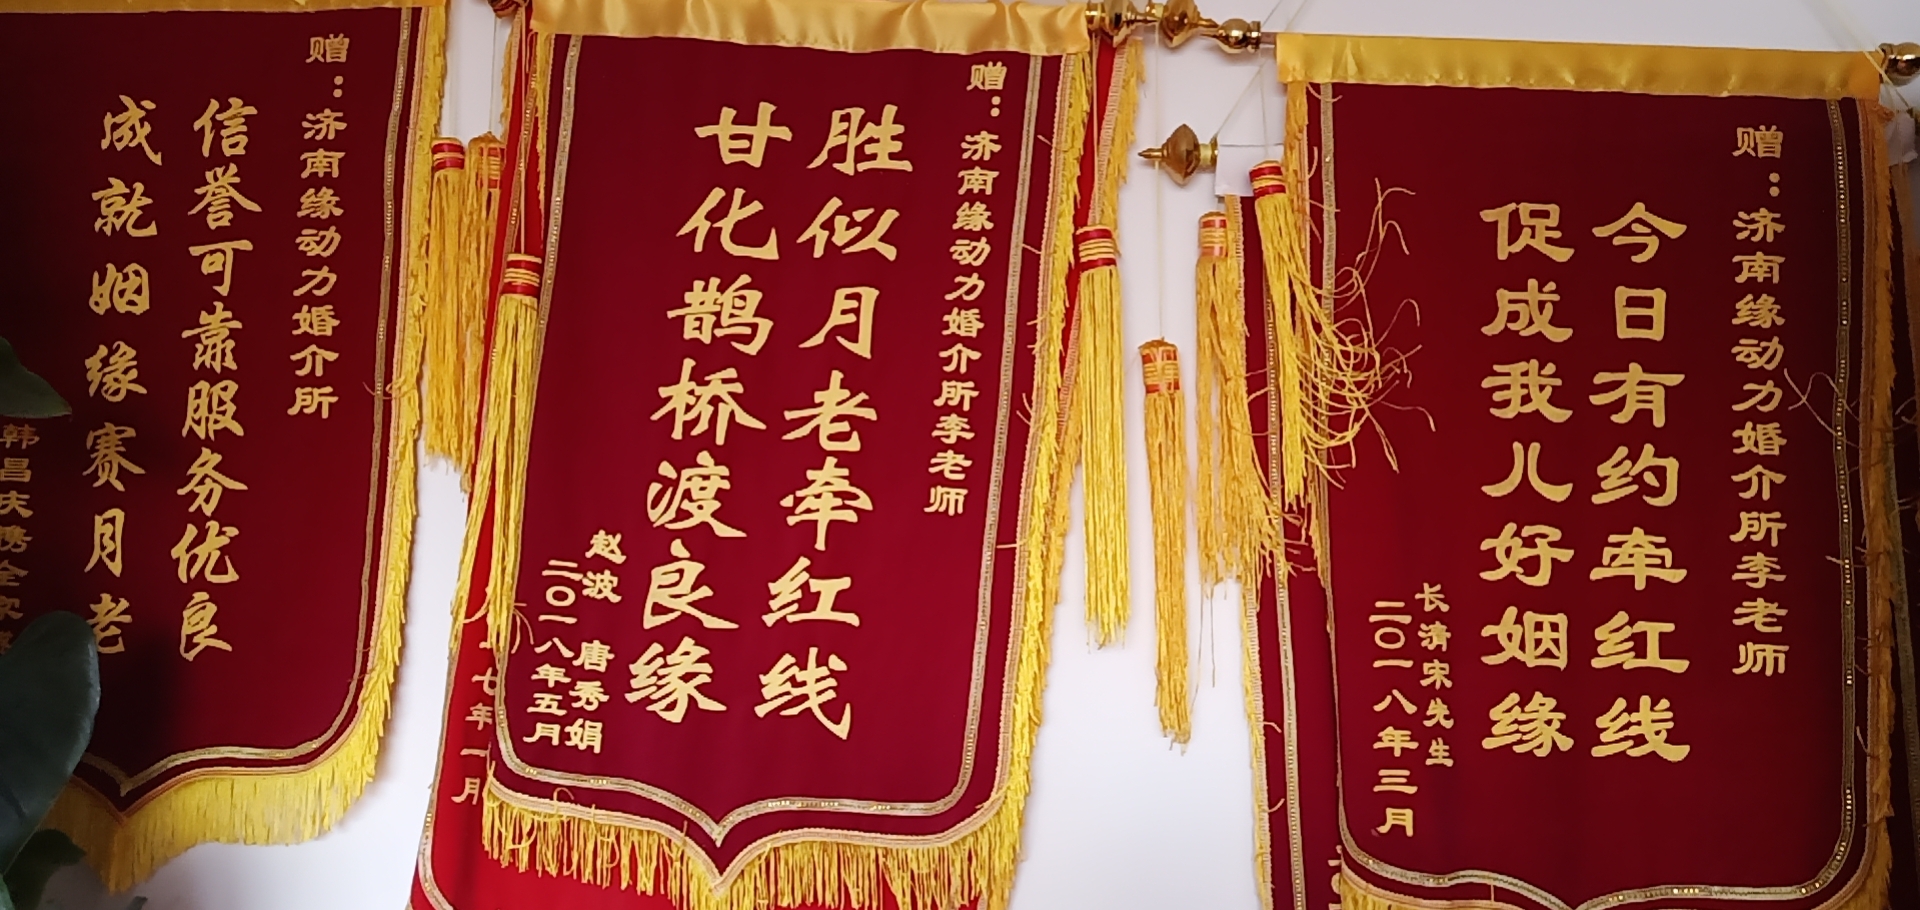 赠：济南缘动力婚介所
信誉可靠服务优良
成就姻缘赛月老
韩昌庆携全家
赠：济南缘动力婚介所李老师
胜似月老牵红线
甘化鹊桥渡良缘
赵波 唐秀娟
二〇一八年五月
七年一月
赠：济南缘动力婚介所李老师
今日有约牵红线
促成我儿好姻缘
长清宋先生
二〇一八年三月